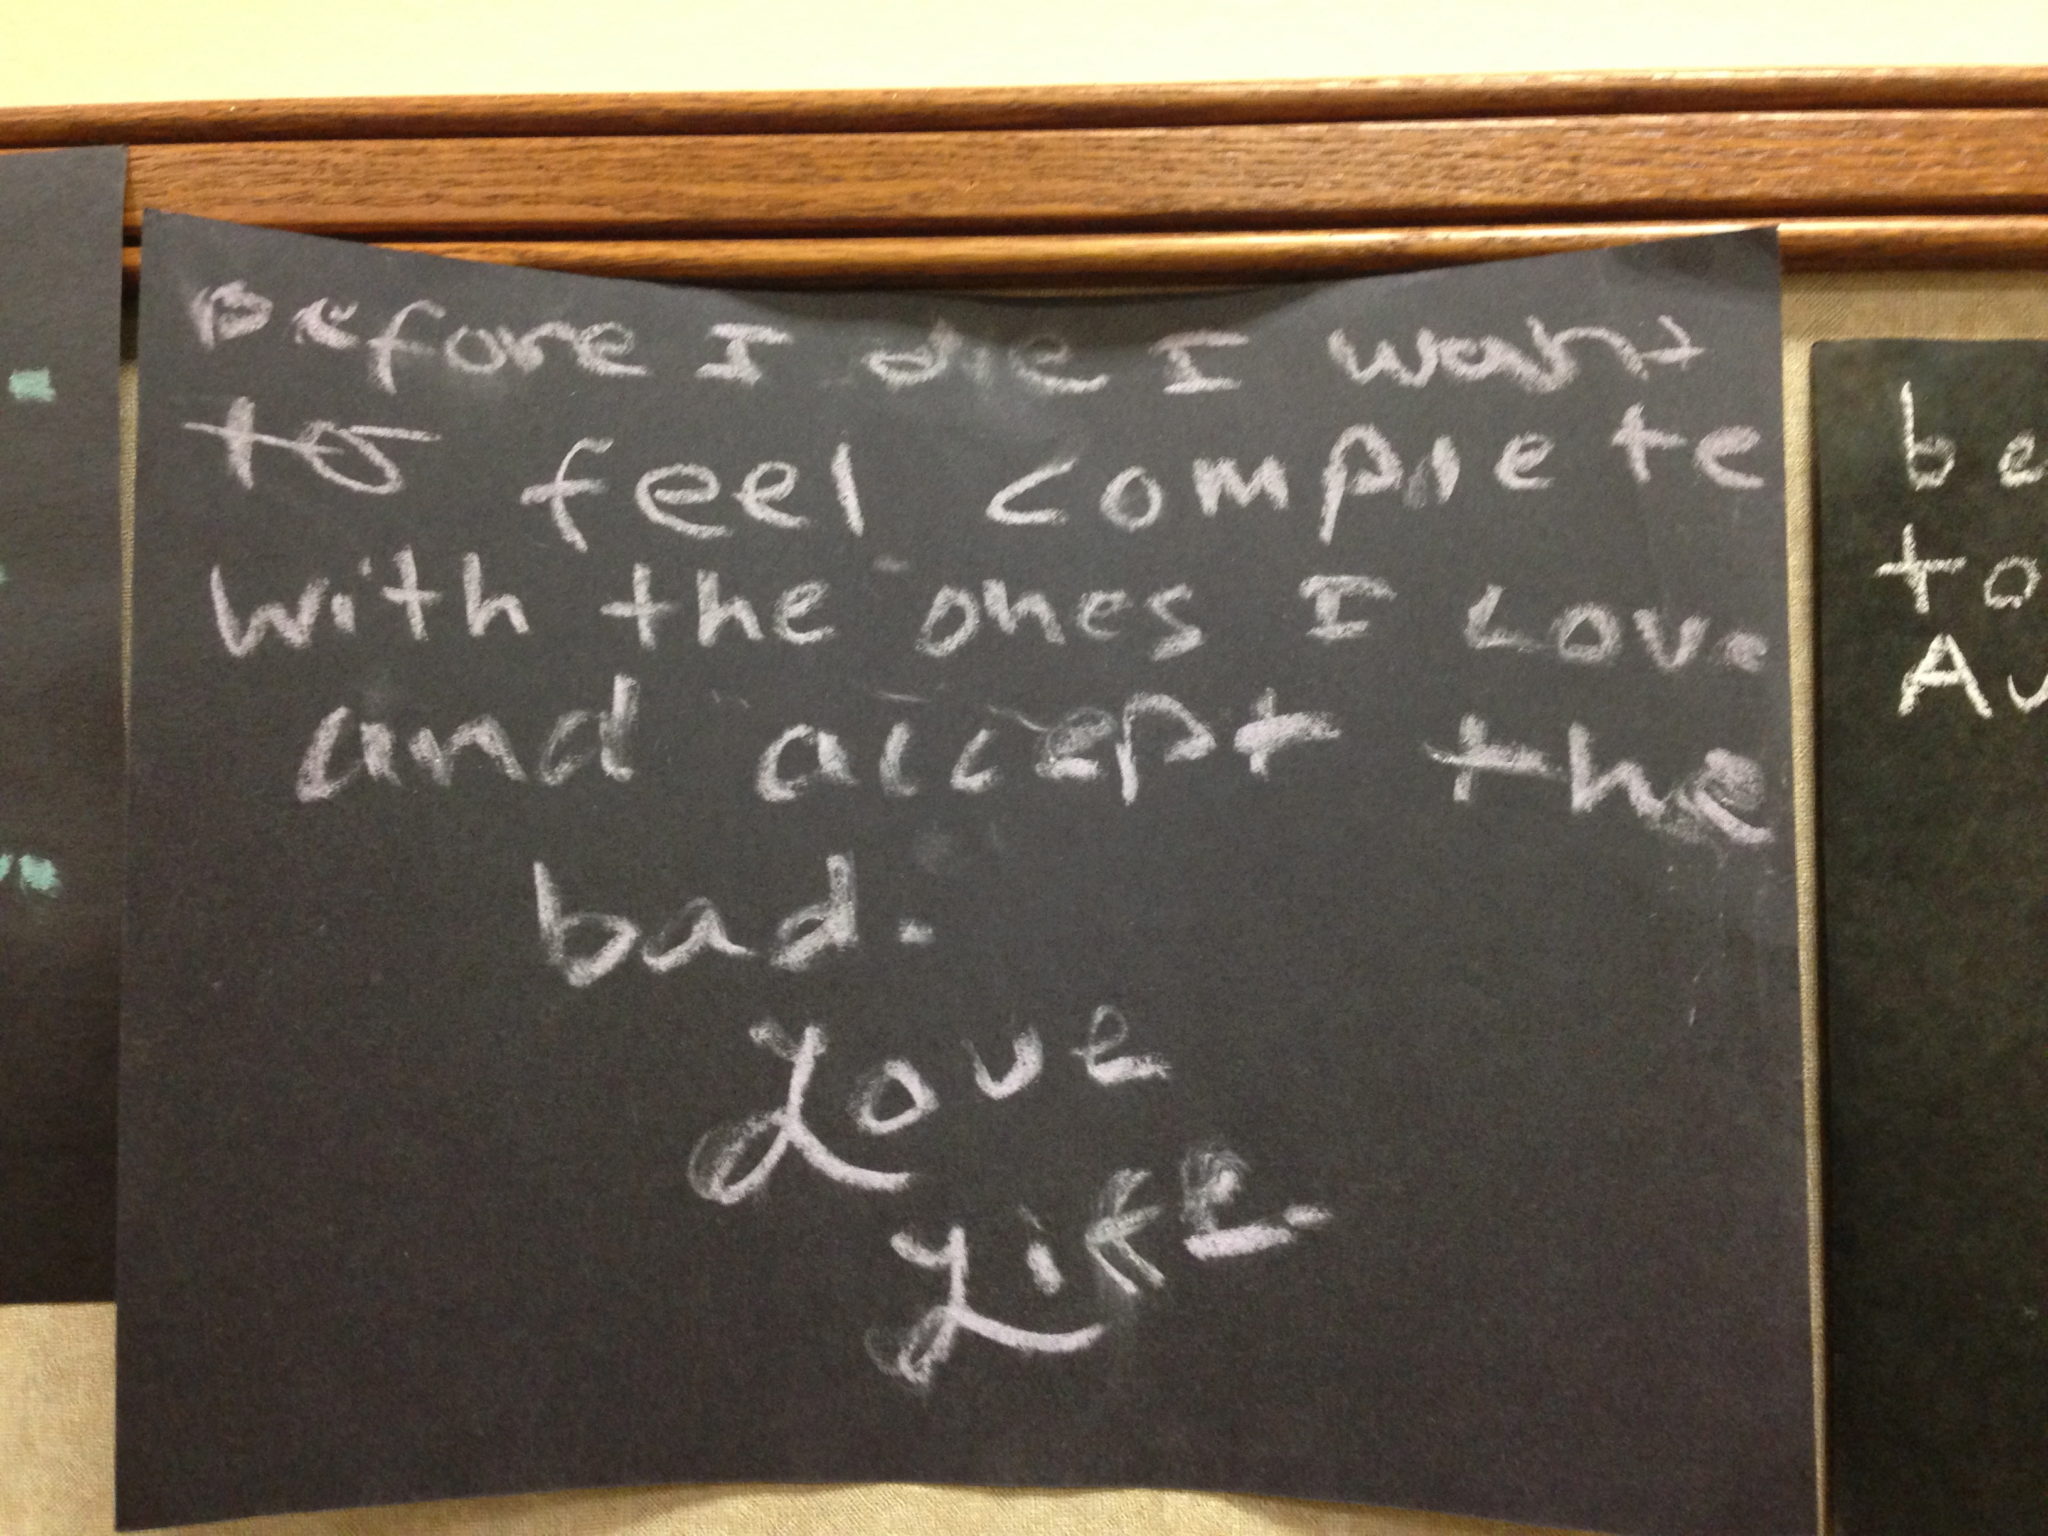 Before I die I want
to feel complete
with the ones I Love
and accept the
bad.
Love
Life.
be
to
Au